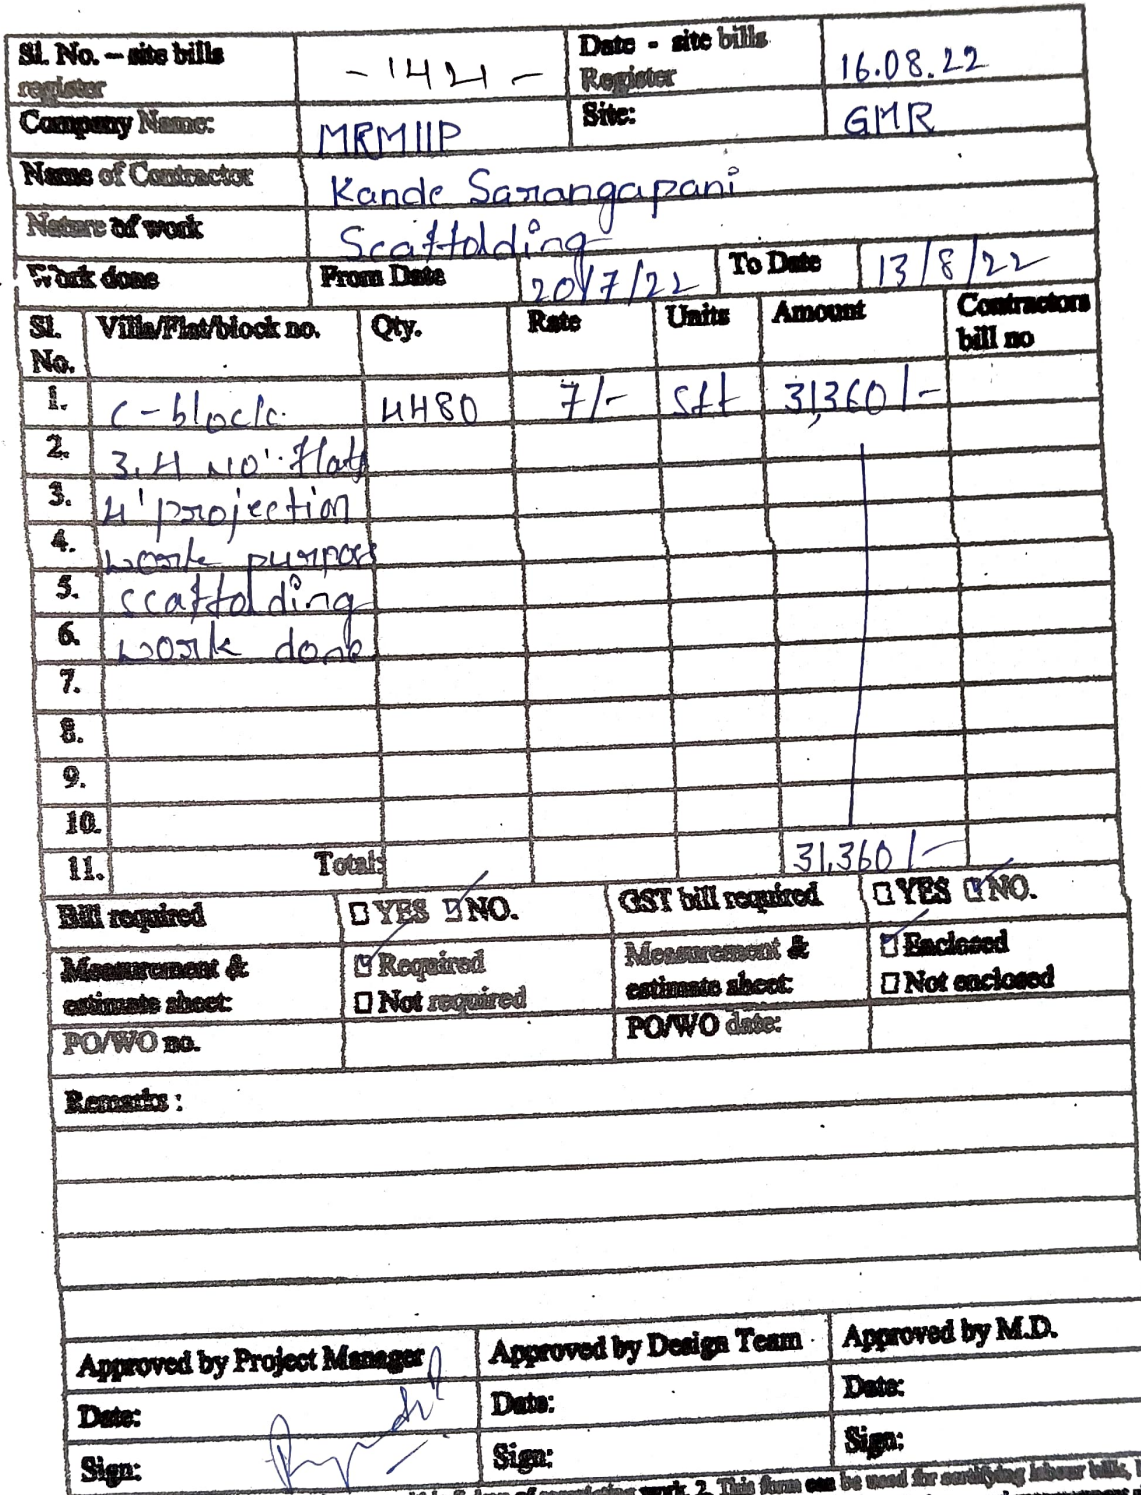 Sl. No. – site bills register - 1421 - Date - site bills Register 16.08.22
Company Name: MRMIIP Site: GMR
Name of Contractor Kande Sarangapani
Nature of work Scaffolding
Work done From Date 20/7/22 To Date 13/8/22
Sl. No. Villa/Flat/block no. Qty. Rate Units Amount Contractors bill no
1. C-block. 4480 7/- sft 31,360/-
2. 3.4 NO'. flat
3. 4' projection
4. work purpose
5. scaffolding
6. work done
7.
8.
9.
10.
11. Total: 31,360/-
Bill required YES NO. GST bill required YES NO.
Measurement & estimate sheet: Required Not required Measurement & estimate sheet: Enclosed Not enclosed
PO/WO no. PO/WO date:
Remarks :
Approved by Project Manager Approved by Design Team Approved by M.D.
Date: Date: Date:
Sign: Sign: Sign:
work. 2. This form can be used for certifying labour bills,